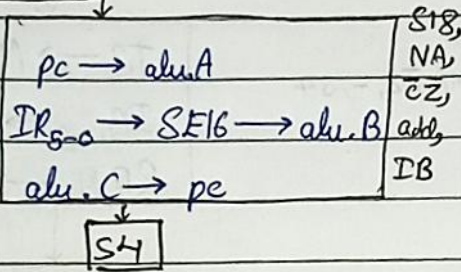 pc → alu.A
IR₅₋₀ → SE16 → alu.B
alu.C → pc
S18,
NA,
C̅Z̅,
add,
IB
S4